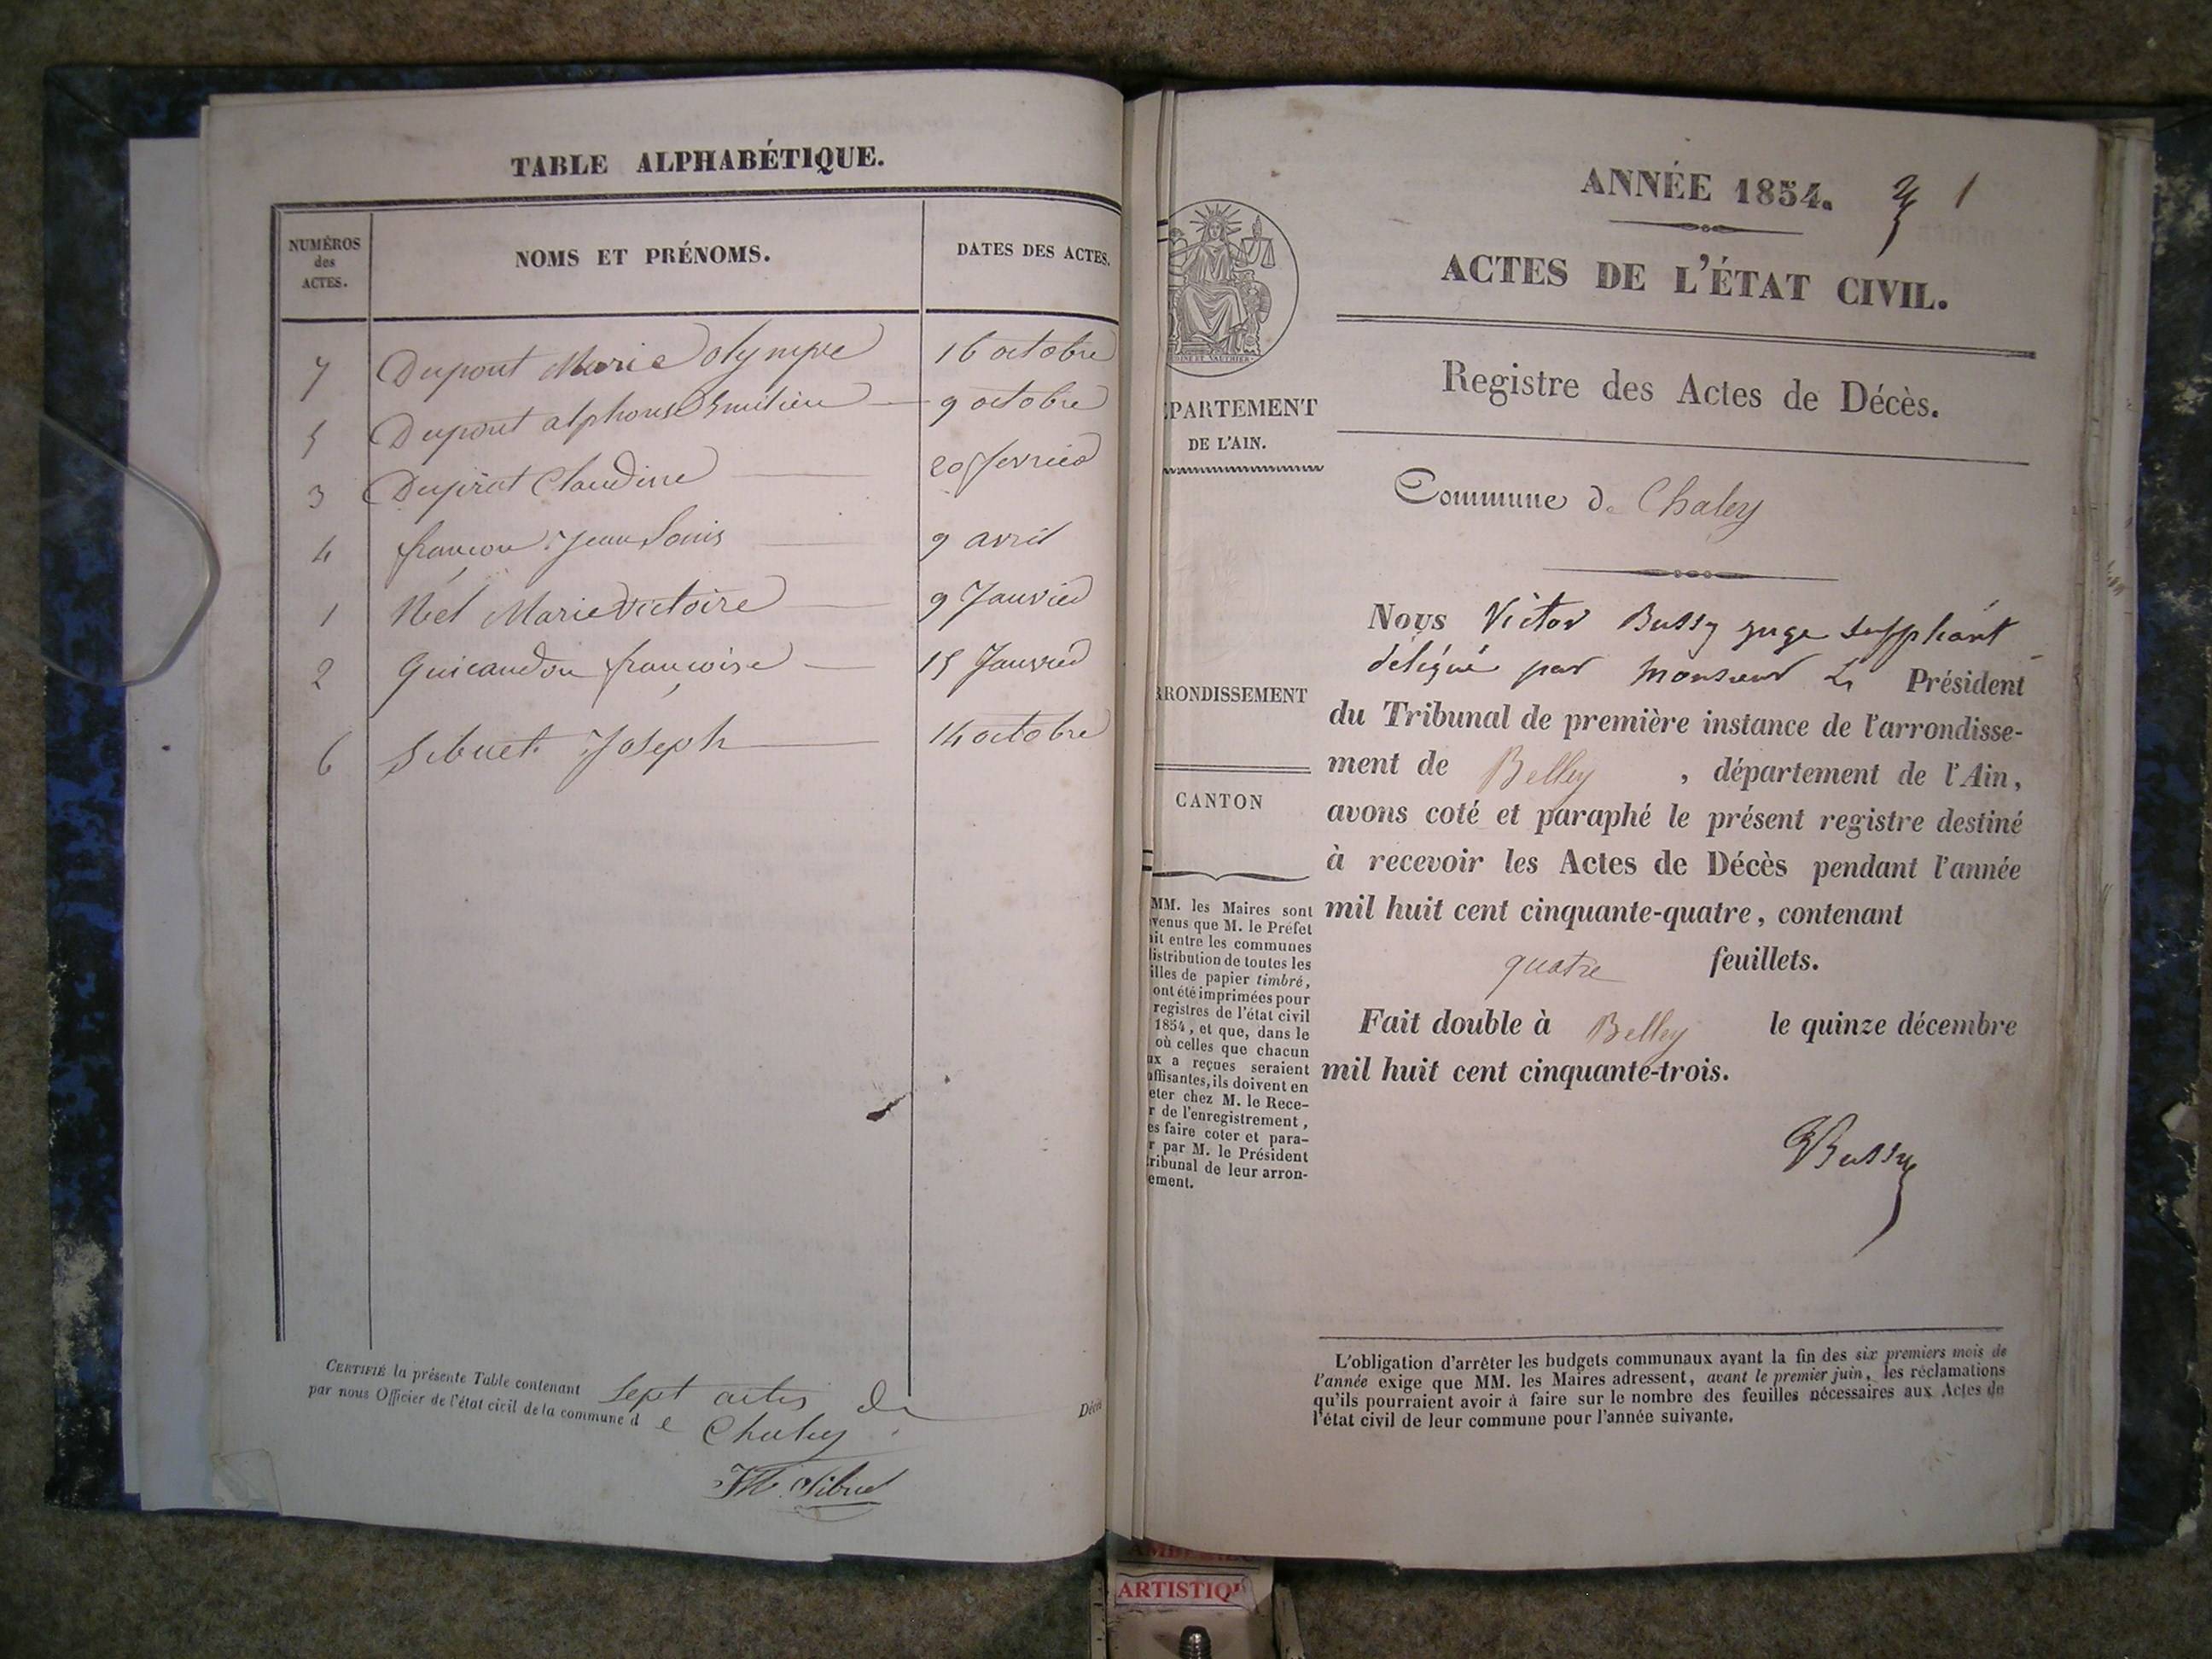 TABLE ALPHABÉTIQUE.
NUMÉROS
des
ACTES.
NOMS ET PRÉNOMS.
DATES DES ACTES.
7 Dupont Marie Olympe 16 octobre
5 Dupont alphonse Emilien 9 octobre
3 Claudine 20 fevrier
4 françon Jean Louis 9 avril
1 Niel Marie Victoire 9 Janvier
2 Guicaudon françoise 15 Janvier
6 Sibuet Joseph 14 octobre
CERTIFIÉ la présente Table contenant sept actes de Décès
par nous Officier de l'état civil de la commune d e Chaley
Sibuet
ANNÉE 1854. 1
ACTES DE L'ÉTAT CIVIL.
Registre des Actes de Décès.
PARTEMENT
DE L'AIN.
RONDISSEMENT
CANTON
MM. les Maires sont
venus que M. le Préfet
ait entre les communes
distribution de toutes les
illes de papier timbré,
ont été imprimées pour
registres de l'état civil
1854, et que, dans le
où celles que chacun
ux a reçues seraient
uffisantes, ils doivent en
eter chez M. le Rece-
r de l'enregistrement,
es faire coter et para-
r par M. le Président
tribunal de leur arron-
ement.
Commune de Chaley
Nous Victor Bussy juge suppléant
délégué par Monsieur Le Président
du Tribunal de première instance de l'arrondisse-
ment de Belley, département de l'Ain,
avons coté et paraphé le présent registre destiné
à recevoir les Actes de Décès pendant l'année
mil huit cent cinquante-quatre, contenant
quatre feuillets.
Fait double à Belley le quinze décembre
mil huit cent cinquante-trois.
VBussy
L'obligation d'arrêter les budgets communaux avant la fin des six premiers mois de
l'année exige que MM. les Maires adressent, avant le premier juin, les réclamations
qu'ils pourraient avoir à faire sur le nombre des feuilles nécessaires aux Actes de
l'état civil de leur commune pour l'année suivante.
ARTISTIQU